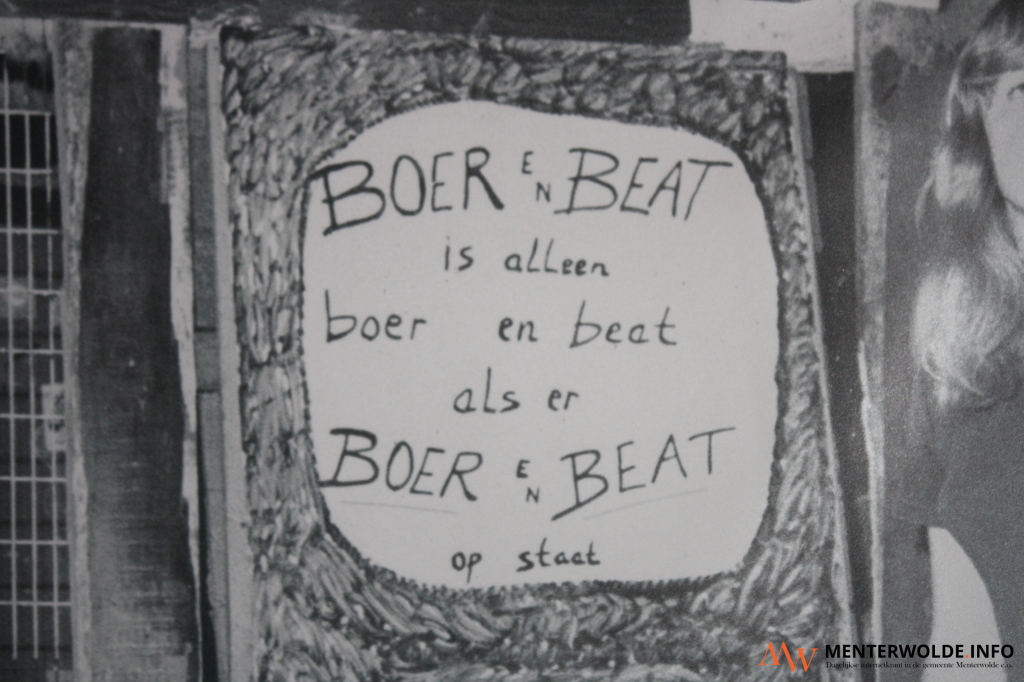 BOER EN BEAT
is alleen
boer en beat
als er
BOER EN BEAT
op staat
MENTERWOLDE.INFO
Dagelijkse internetkrant in de gemeente Menterwolde e.o.